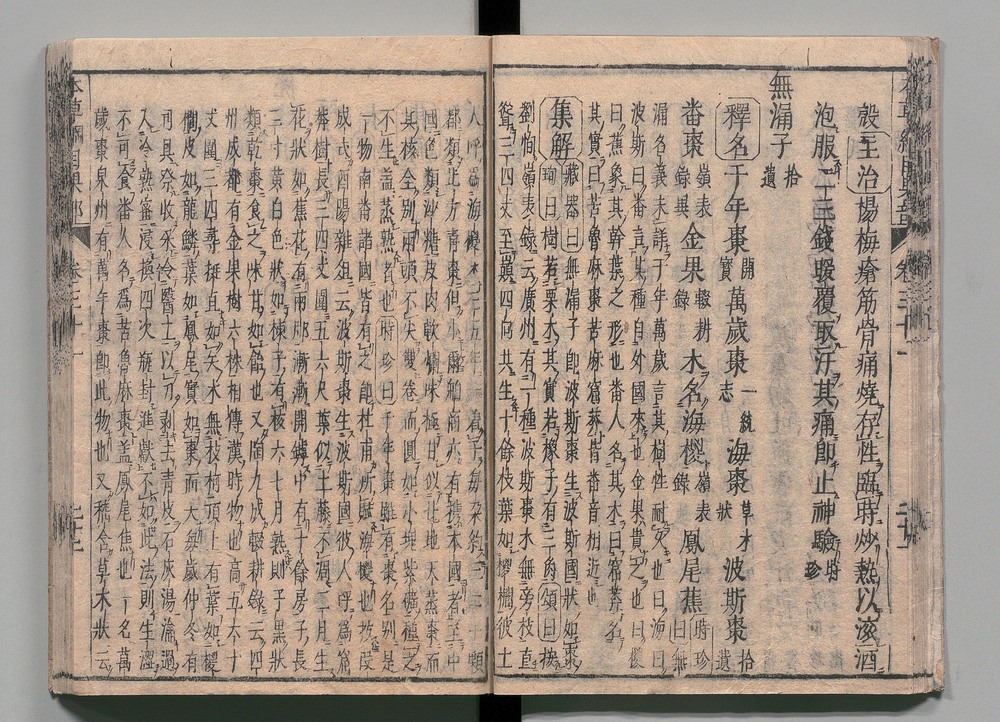 殼主治楊梅瘡筋骨痛燒存性臨時炒熱以滾酒
泡服二三錢暖覆取汗其痛即止神驗時珍
無漏子拾遺
釋名千年棗開寶萬歲棗一統志海棗草木狀波斯棗拾遺
番棗嶺表錄異金果輟耕錄木名海椶嶺表錄鳳尾蕉時珍曰無
漏名義未詳千年萬歲言其樹性耐久也曰海曰
波斯曰番言其種自外國來也金果貴之也曰椶
曰蕉象其幹葉之形也番人名其木曰窟莽名
其實曰苦魯麻棗苦麻窟莽皆番音相近也
集解藏器曰無漏子即波斯棗生波斯國狀如棗
珣曰樹若栗木其實若橡子有三角頌曰按
劉恂嶺表錄云廣州有一種波斯棗木無旁枝直
聳三四丈至巔四向共生十餘枝葉如椶櫚彼土
人呼為海椶木三五年一著子每朵約三二十顆
都類北方青棗但小爾舶商亦有攜本國者至中
國色類沙糖皮肉軟爛味極甘似北地天蒸棗而
其核全別兩頭不尖雙卷而圓如小塊紫礦種之
不生蓋蒸熟者也時珍曰千年棗雖有棗名別是
一物南番諸國皆有之即杜甫所賦海椶也按段
成式酉陽雜俎云波斯棗生波斯國彼人呼為窟
莽樹長三四丈圍五六尺葉似土藤不凋二月生
花狀如蕉花有兩脚漸漸開罅中有十餘房子長
二寸黃白色狀如楝子有核六七月熟則子黑狀
類乾棗食之味甘如飴也又陶九成輟耕錄云四
川成都有金果樹六株相傳漢時物也高五六十
丈圍三四尋挺直如矢木無枝柯頂上有葉如椶
櫚皮如龍鱗葉如鳳尾實如棗而大每歲仲冬有
司具祭收采令醫士以刀剝去青皮石灰湯瀹過
入冷熟蜜浸換四次瓶封進獻不如此法則生澀
不可食番人名為苦魯麻棗蓋鳳尾蕉也一名萬
歲棗泉州有萬年棗即此物也又嵇含草木狀云